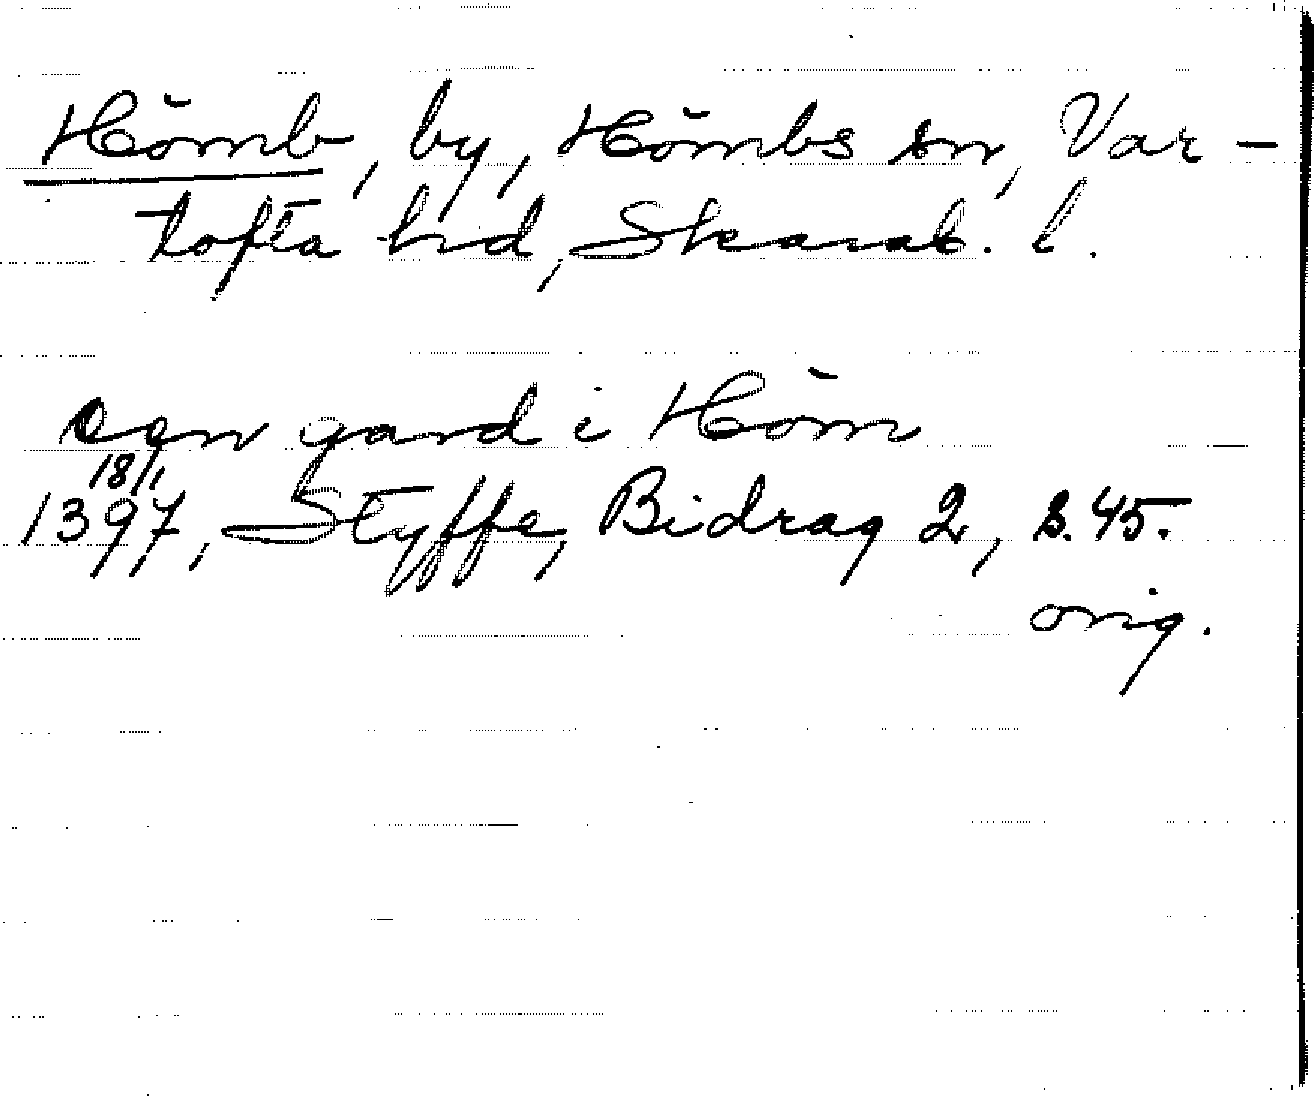 Hömb, by, Hömbs sn, Var-
tofta hd, Skarab. l.
een gard i Höm
18/1
1397, Styffe, Bidrag 2, s. 45.
orig.